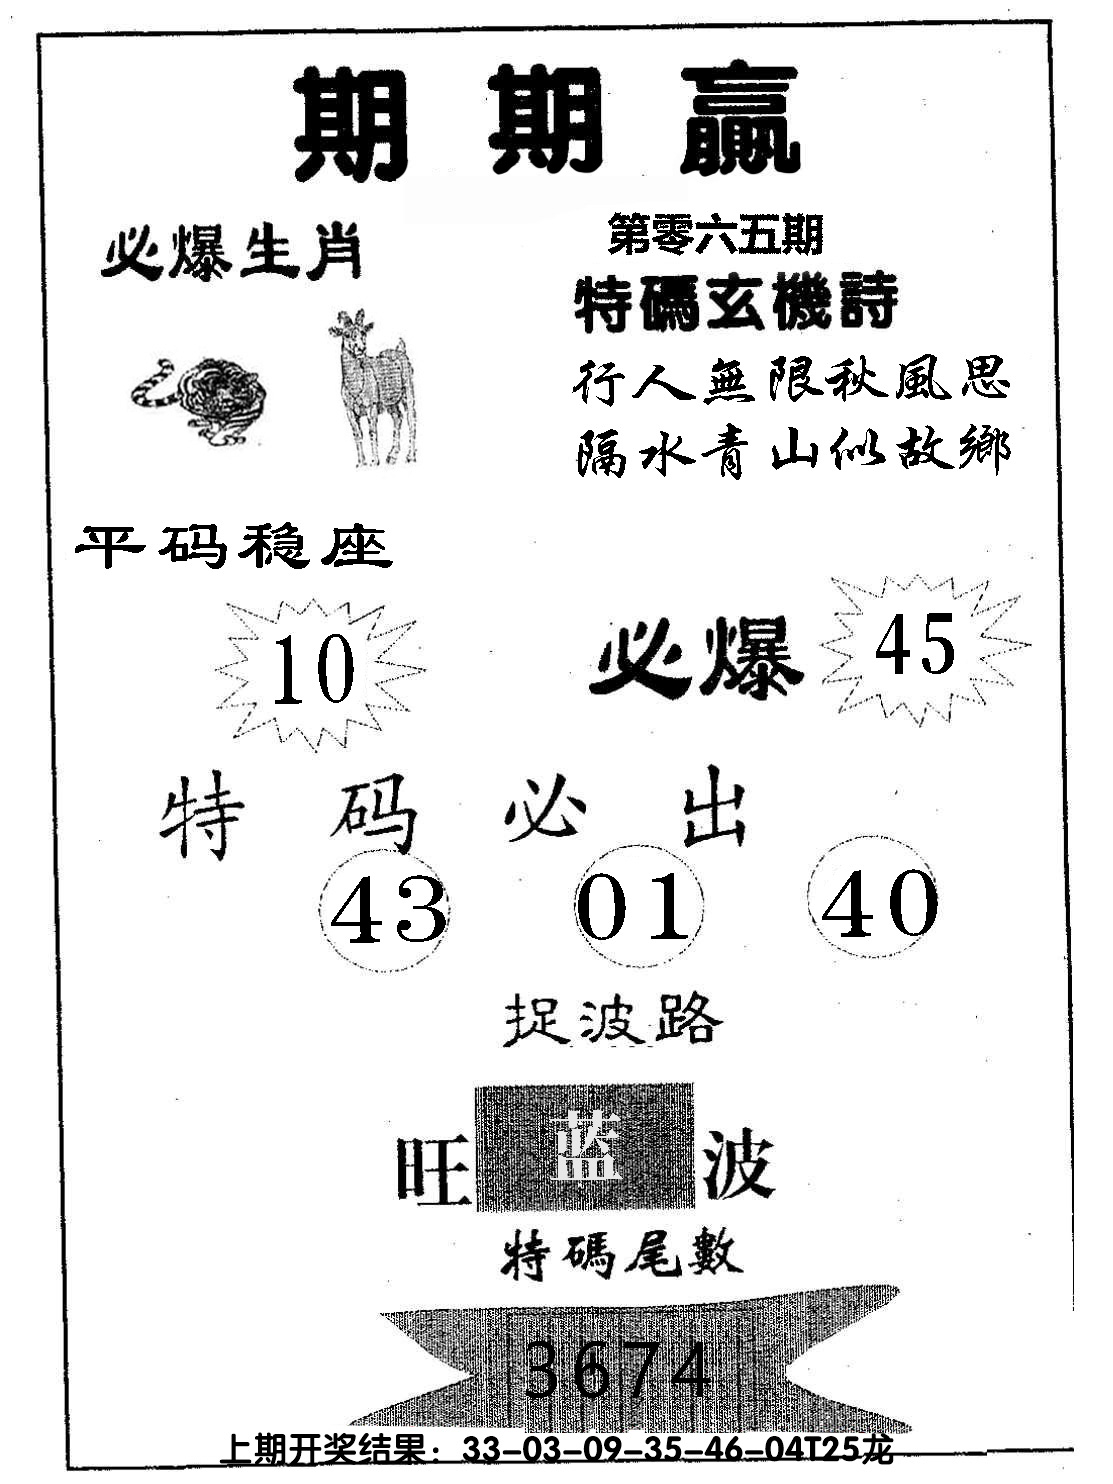 期期贏
必爆生肖
第零六五期
特碼玄機詩
行人無限秋風思
隔水青山似故鄉
平码稳座
10
必爆 45
特码必出
43 01 40
捉波路
旺蓝波
特碼尾數
3674
上期开奖结果：33-03-09-35-46-04T25龙